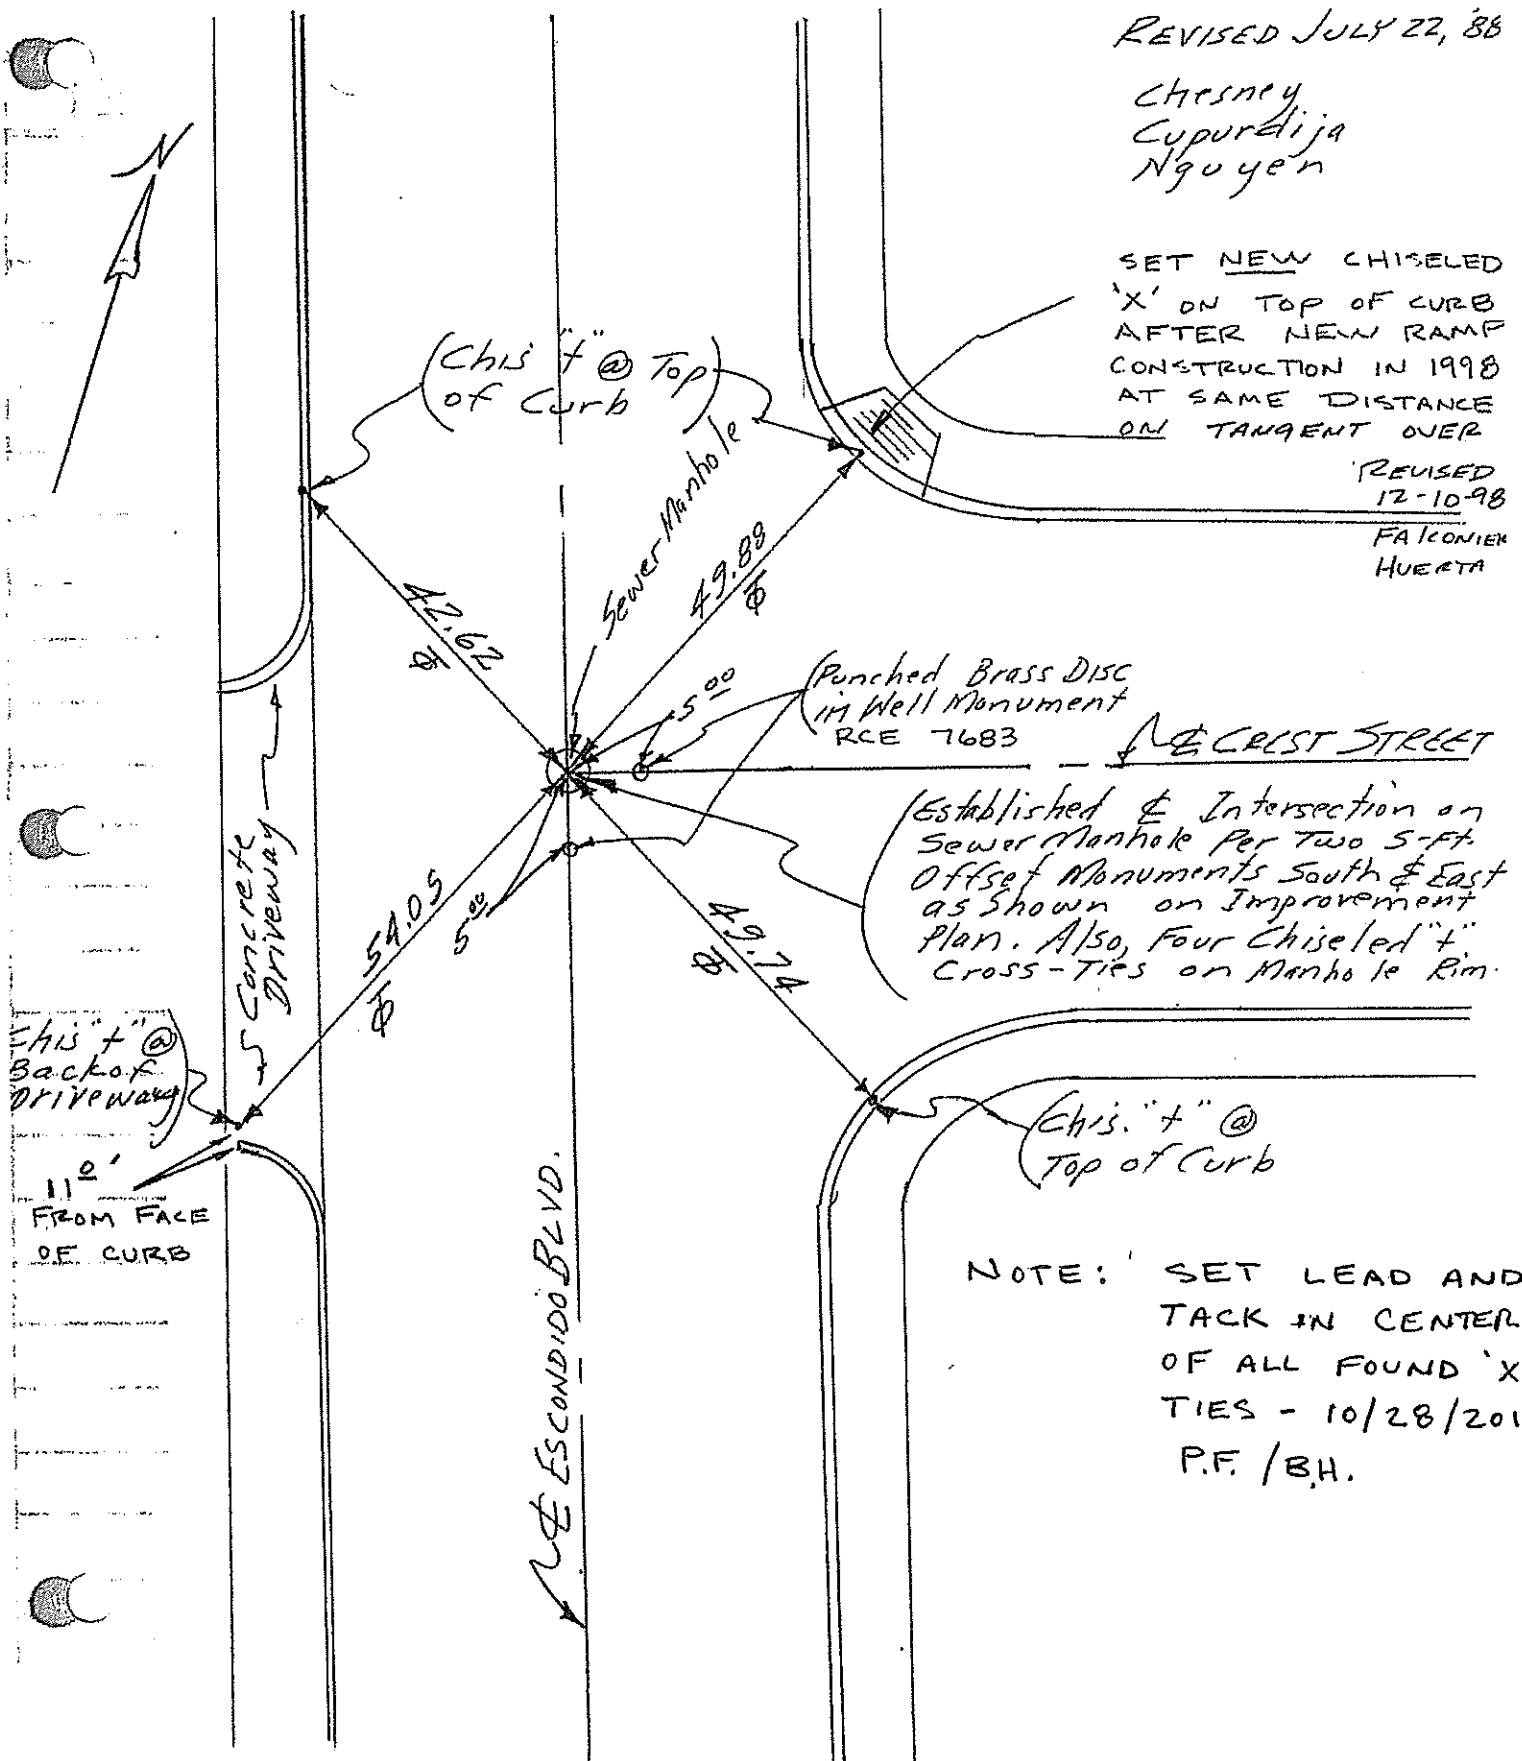 REVISED JULY 22, '88
Chesney
Cupurdija
Nguyen
N
SET NEW CHISELED
'X' ON TOP OF CURB
AFTER NEW RAMP
CONSTRUCTION IN 1998
AT SAME DISTANCE
ON TANGENT OVER
REVISED
12-10-98
FALCONIER
HUERTA
(Chis "+" @ Top
of Curb)
Sewer Manhole
42.62
49.88
5.00
(Punched Brass Disc
in Well Monument
RCE 7683
℄ CREST STREET
(Established ℄ Intersection on
Sewer Manhole Per Two 5-Ft.
Offset Monuments South & East
as Shown on Improvement
Plan. Also, Four Chiseled "+"
Cross-Ties on Manhole Rim.
Concrete
Driveway
54.05
5.00
49.74
Chis "+" @
Back of
Driveway)
11.0'
FROM FACE
OF CURB
(Chis. "+" @
Top of Curb
℄ ESCONDIDO BLVD.
NOTE: SET LEAD AND
TACK IN CENTER
OF ALL FOUND 'X
TIES - 10/28/201
P.F. / B.H.